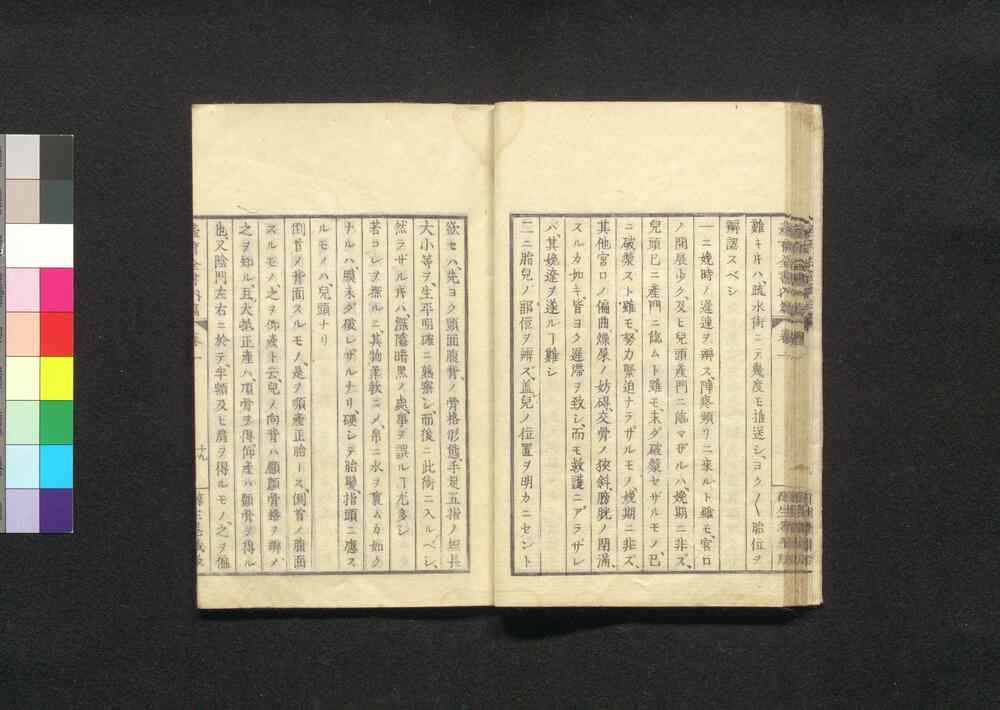 難キキハ、疏水術ニテ幾度モ推送シ、ヨク〱胎位ヲ
辨認スベシ
一ニ娩時ノ遅速ヲ辨ス、陣疼頻リニ来ルト雖モ、宮口
ノ開展少ク、及ヒ兒頭産門ニ臨マザルハ、娩期ニ非ス、
兒頭已ニ産門ニ臨ムト雖モ、未ダ破漿セザルモノ、已
ニ破漿スト雖モ、努力緊迫ナラザルモノ、娩期ニ非ズ、
其他宮口ノ偏曲燥屎ノ妨碍、交骨ノ狹斜、膀胱ノ閉滿、
スルカ如キ、皆ヨク遅滞ヲ致シ、而モ救護ニアラザレ
バ、其娩遼ヲ遂ルヿ難シ
二ニ胎兒ノ部位ヲ辨ズ、蓋兒ノ位置ヲ明カニセント
欲セハ、先ヨク頭面腹背ノ骨格形態、手足五指ノ短長
大小等ヲ、生平明確ニ熟察シ、而後ニ此術ニ入ルベシ、
然ラザル片ハ、深陰暗黒ノ處、事ヲ誤ルヿ尤多シ
若コレヲ探ルニ、其物柔軟ニメ、帛ニ水ヲ裹ムカ如ク
ナルハ膜未ダ破レザルナリ、硬シテ胎髪指頭ニ應ス
ルモノハ、兒頭ナリ
倒首メ背面スルモノ、是ヲ順産正胎トス、倒首ノ腹面
スルモノ、之ヲ仰産ト云、兒ノ向背ハ顱顖骨縫ヲ辨メ
之ヲ知ル、且、大抵正産ハ、項骨ヲ得、仰産ハ額骨ヲ得ル
也、又陰門左右ニ於テ、半頬及ヒ肩ヲ得ルモノ、之ヲ偏
十九